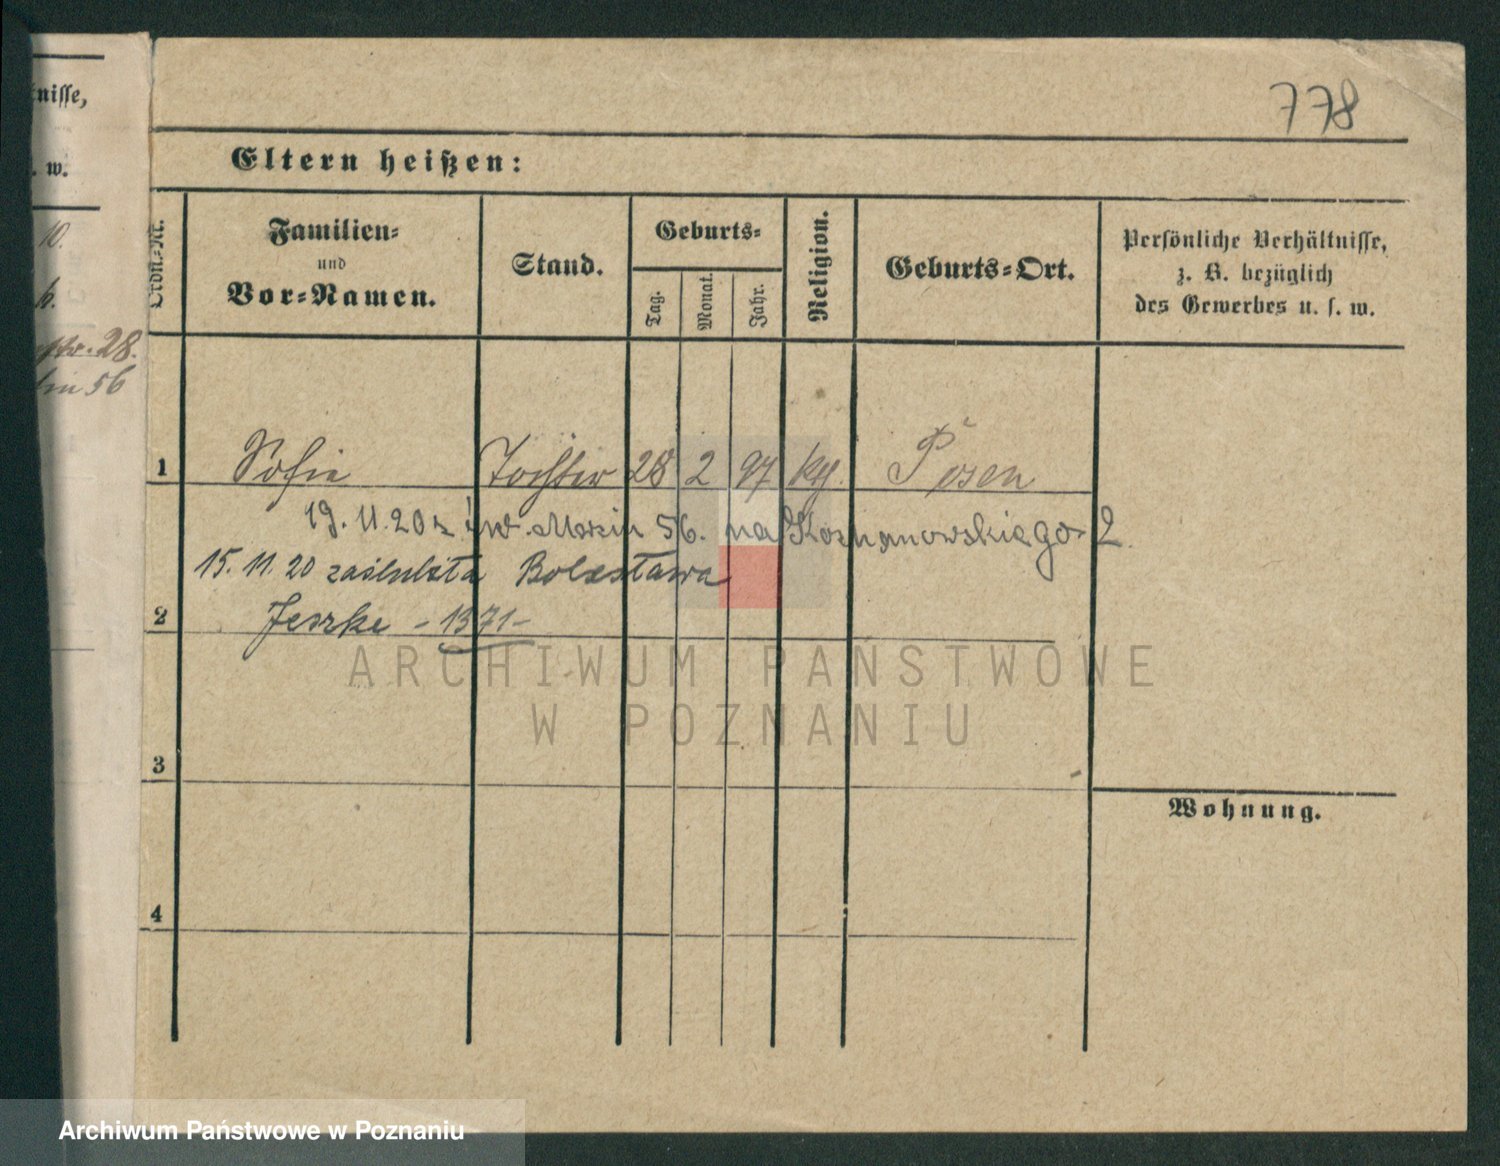 nisse,
. w.
10.
28.
56
778
Eltern heißen:
Ordn.-Nr.
Familien-
und
Vor-Namen.
Stand.
Geburts-
Tag.
Monat.
Jahr.
Religion.
Geburts-Ort.
Persönliche Verhältnisse,
z. B. bezüglich
des Gewerbes u. s. w.
1 Sofie Tochter 28 2 97 kg. Posen
19. 11. 20 z św. Marcin 56. na 2.
15. 11. 20 zaślubiła Bolesława
2 Jeszke - 1371 -
ARCHIWUM PAŃSTWOWE
W POZNANIU
3
Wohnung.
4
Archiwum Państwowe w Poznaniu